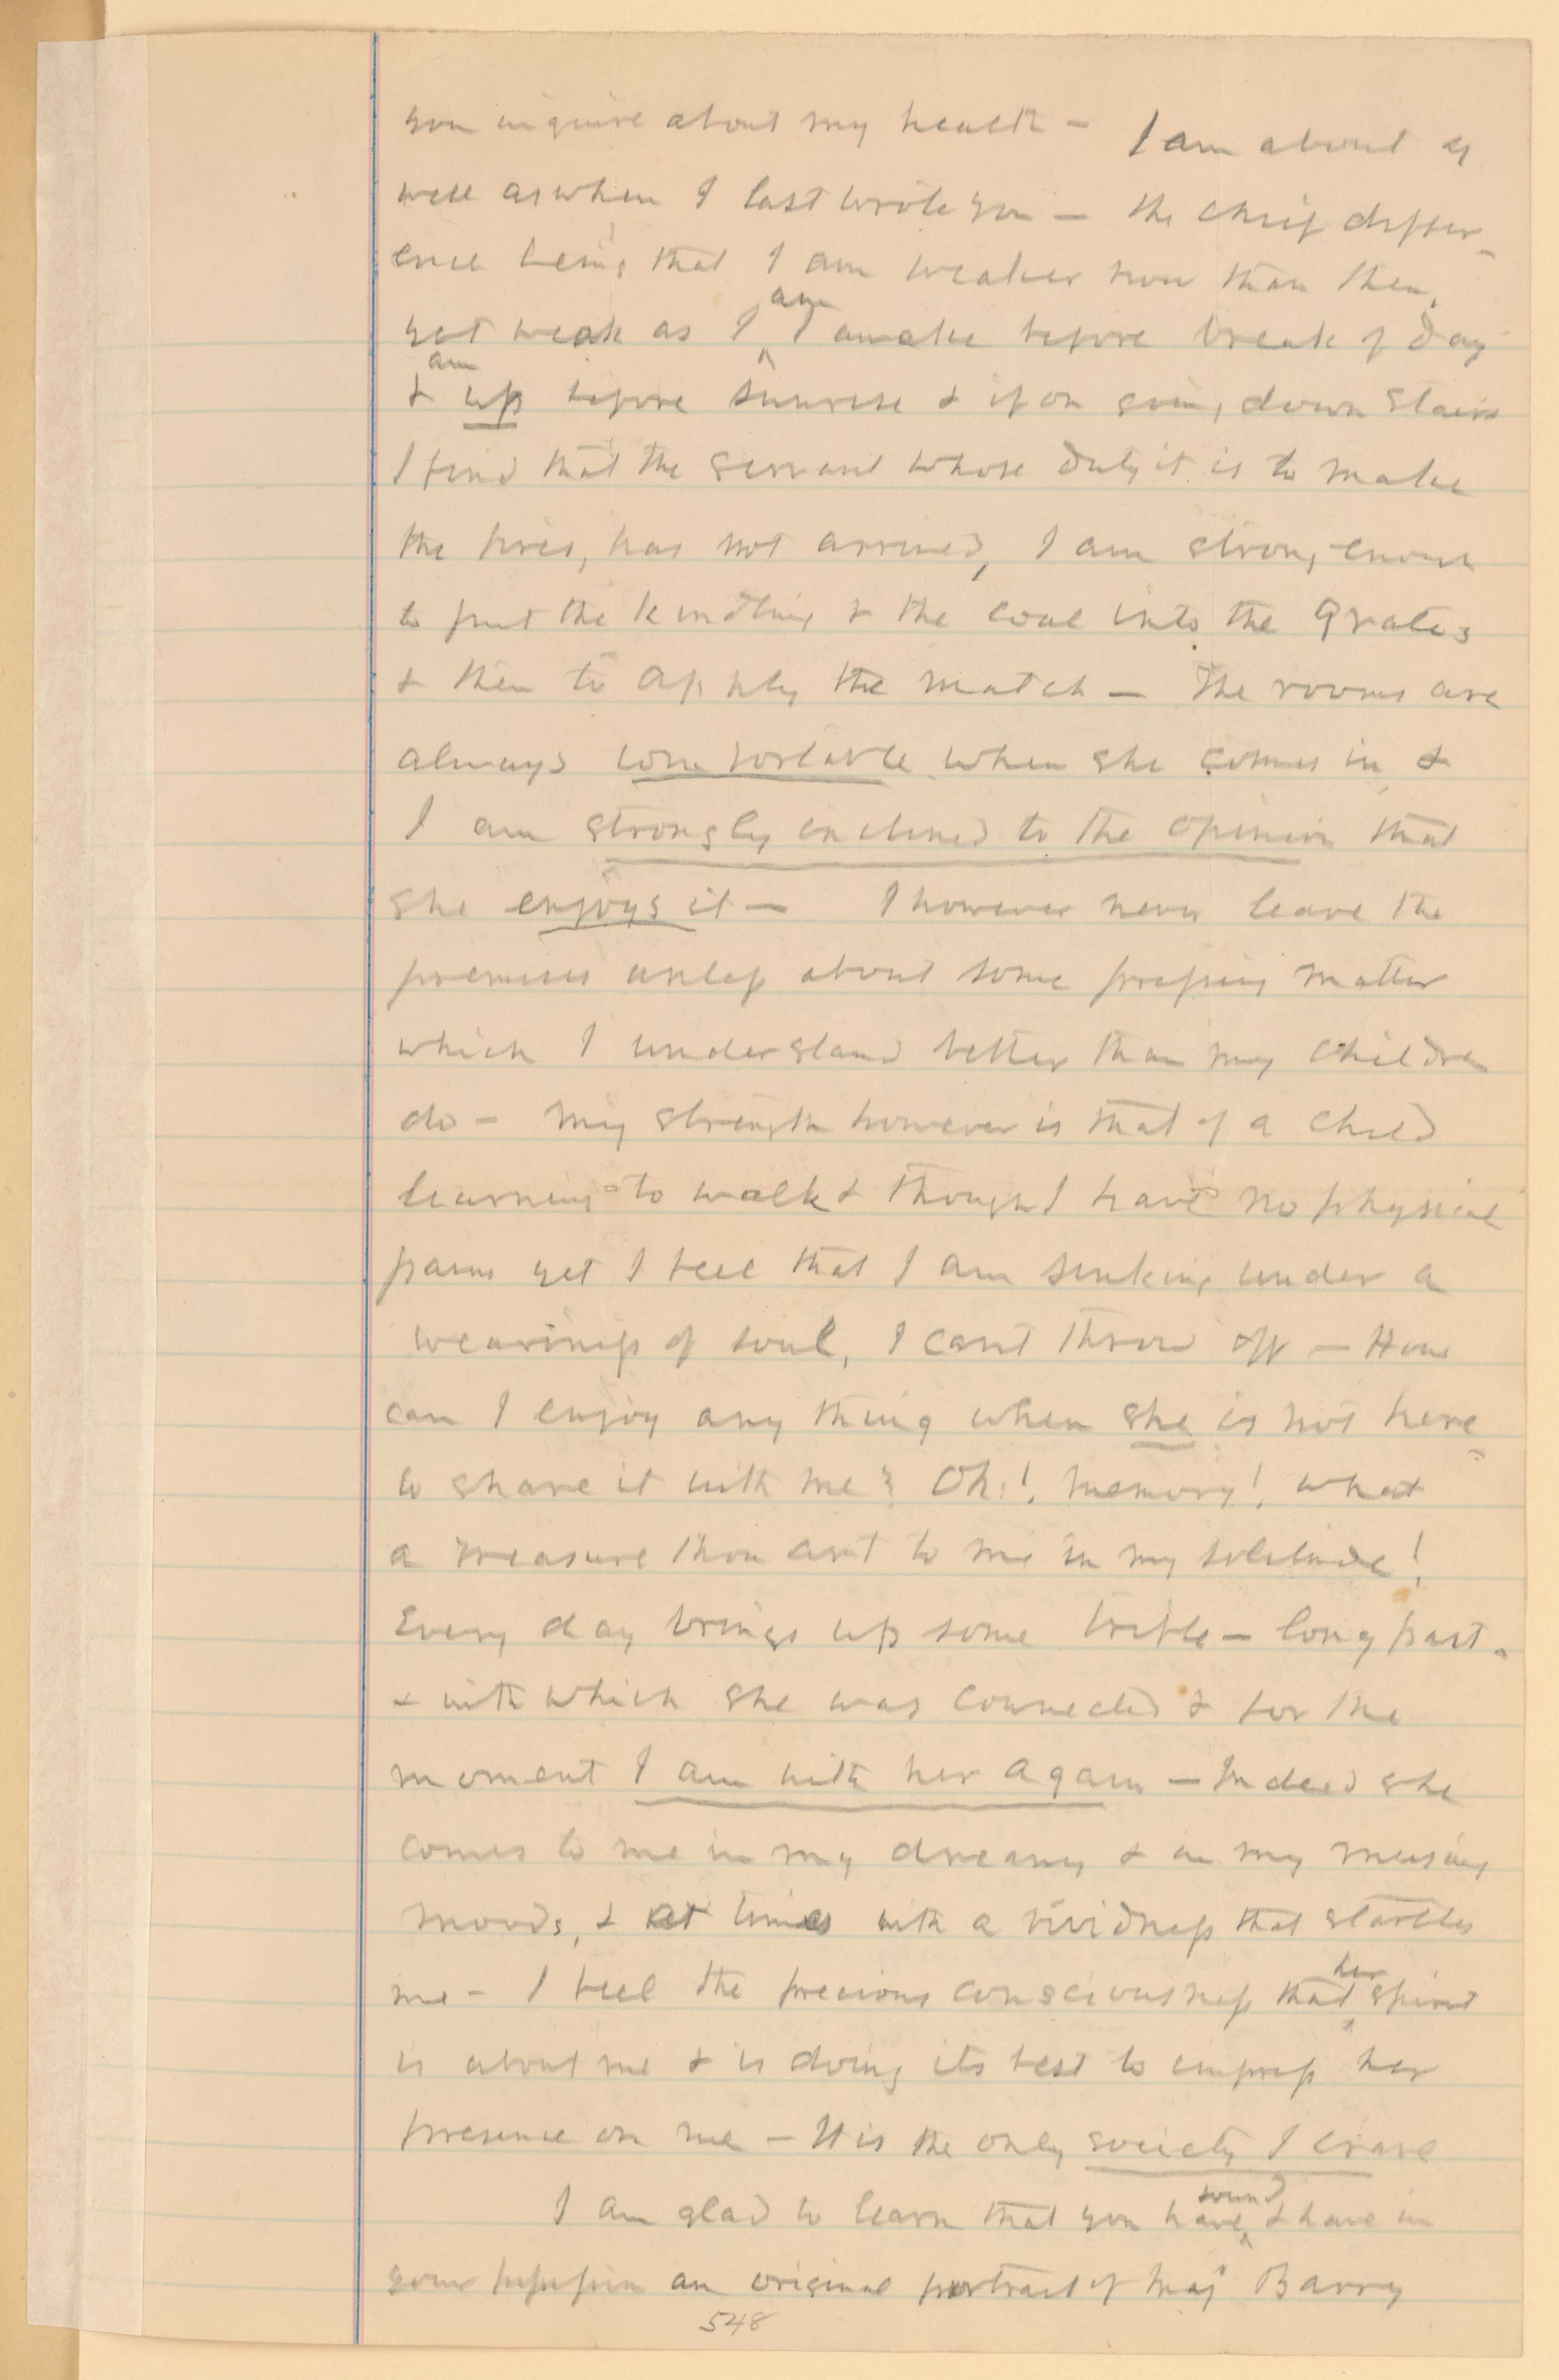 you inquire about my health – I am about as
well as when I last wrote you – the chief differ-
ence being that I am weaker now than then,
yet weak as I am I awake before break of day
& am up before sunrise & if on going down stairs
I find that the servant whose duty it is to make
the fires, has not arrived, I am strong enough
to put the kindling & the coal into the grates
& then to apply the match – The rooms are
always comfortable when she comes in, &
I am strongly inclined to the opinion that
she enjoys it – I however never leave the
premises unless about some pressing matter
which I understand better than my children
do – My strength however is that of a child
learning to walk & though I have no physical
pains yet I feel that I am sinking under a
weariness of soul, I cant throw off – How
can I enjoy any thing when she is not here
to share it with me? Oh!, memory!, what
a treasure thou art to me in my solitude!
Every day brings up some trifle – long past.
& with which she was connected & for the
moment I am with her again – Indeed she
comes to me in my dreams & in my musing
moods, & at times with a vividness that startles
me – I feel the precious consciousness that her spirit
is about me & is doing its best to impress her
presence on me – It is the only society I crave
I am glad to learn that you have found & have in
your possession an original portrait of Maj Barry
548